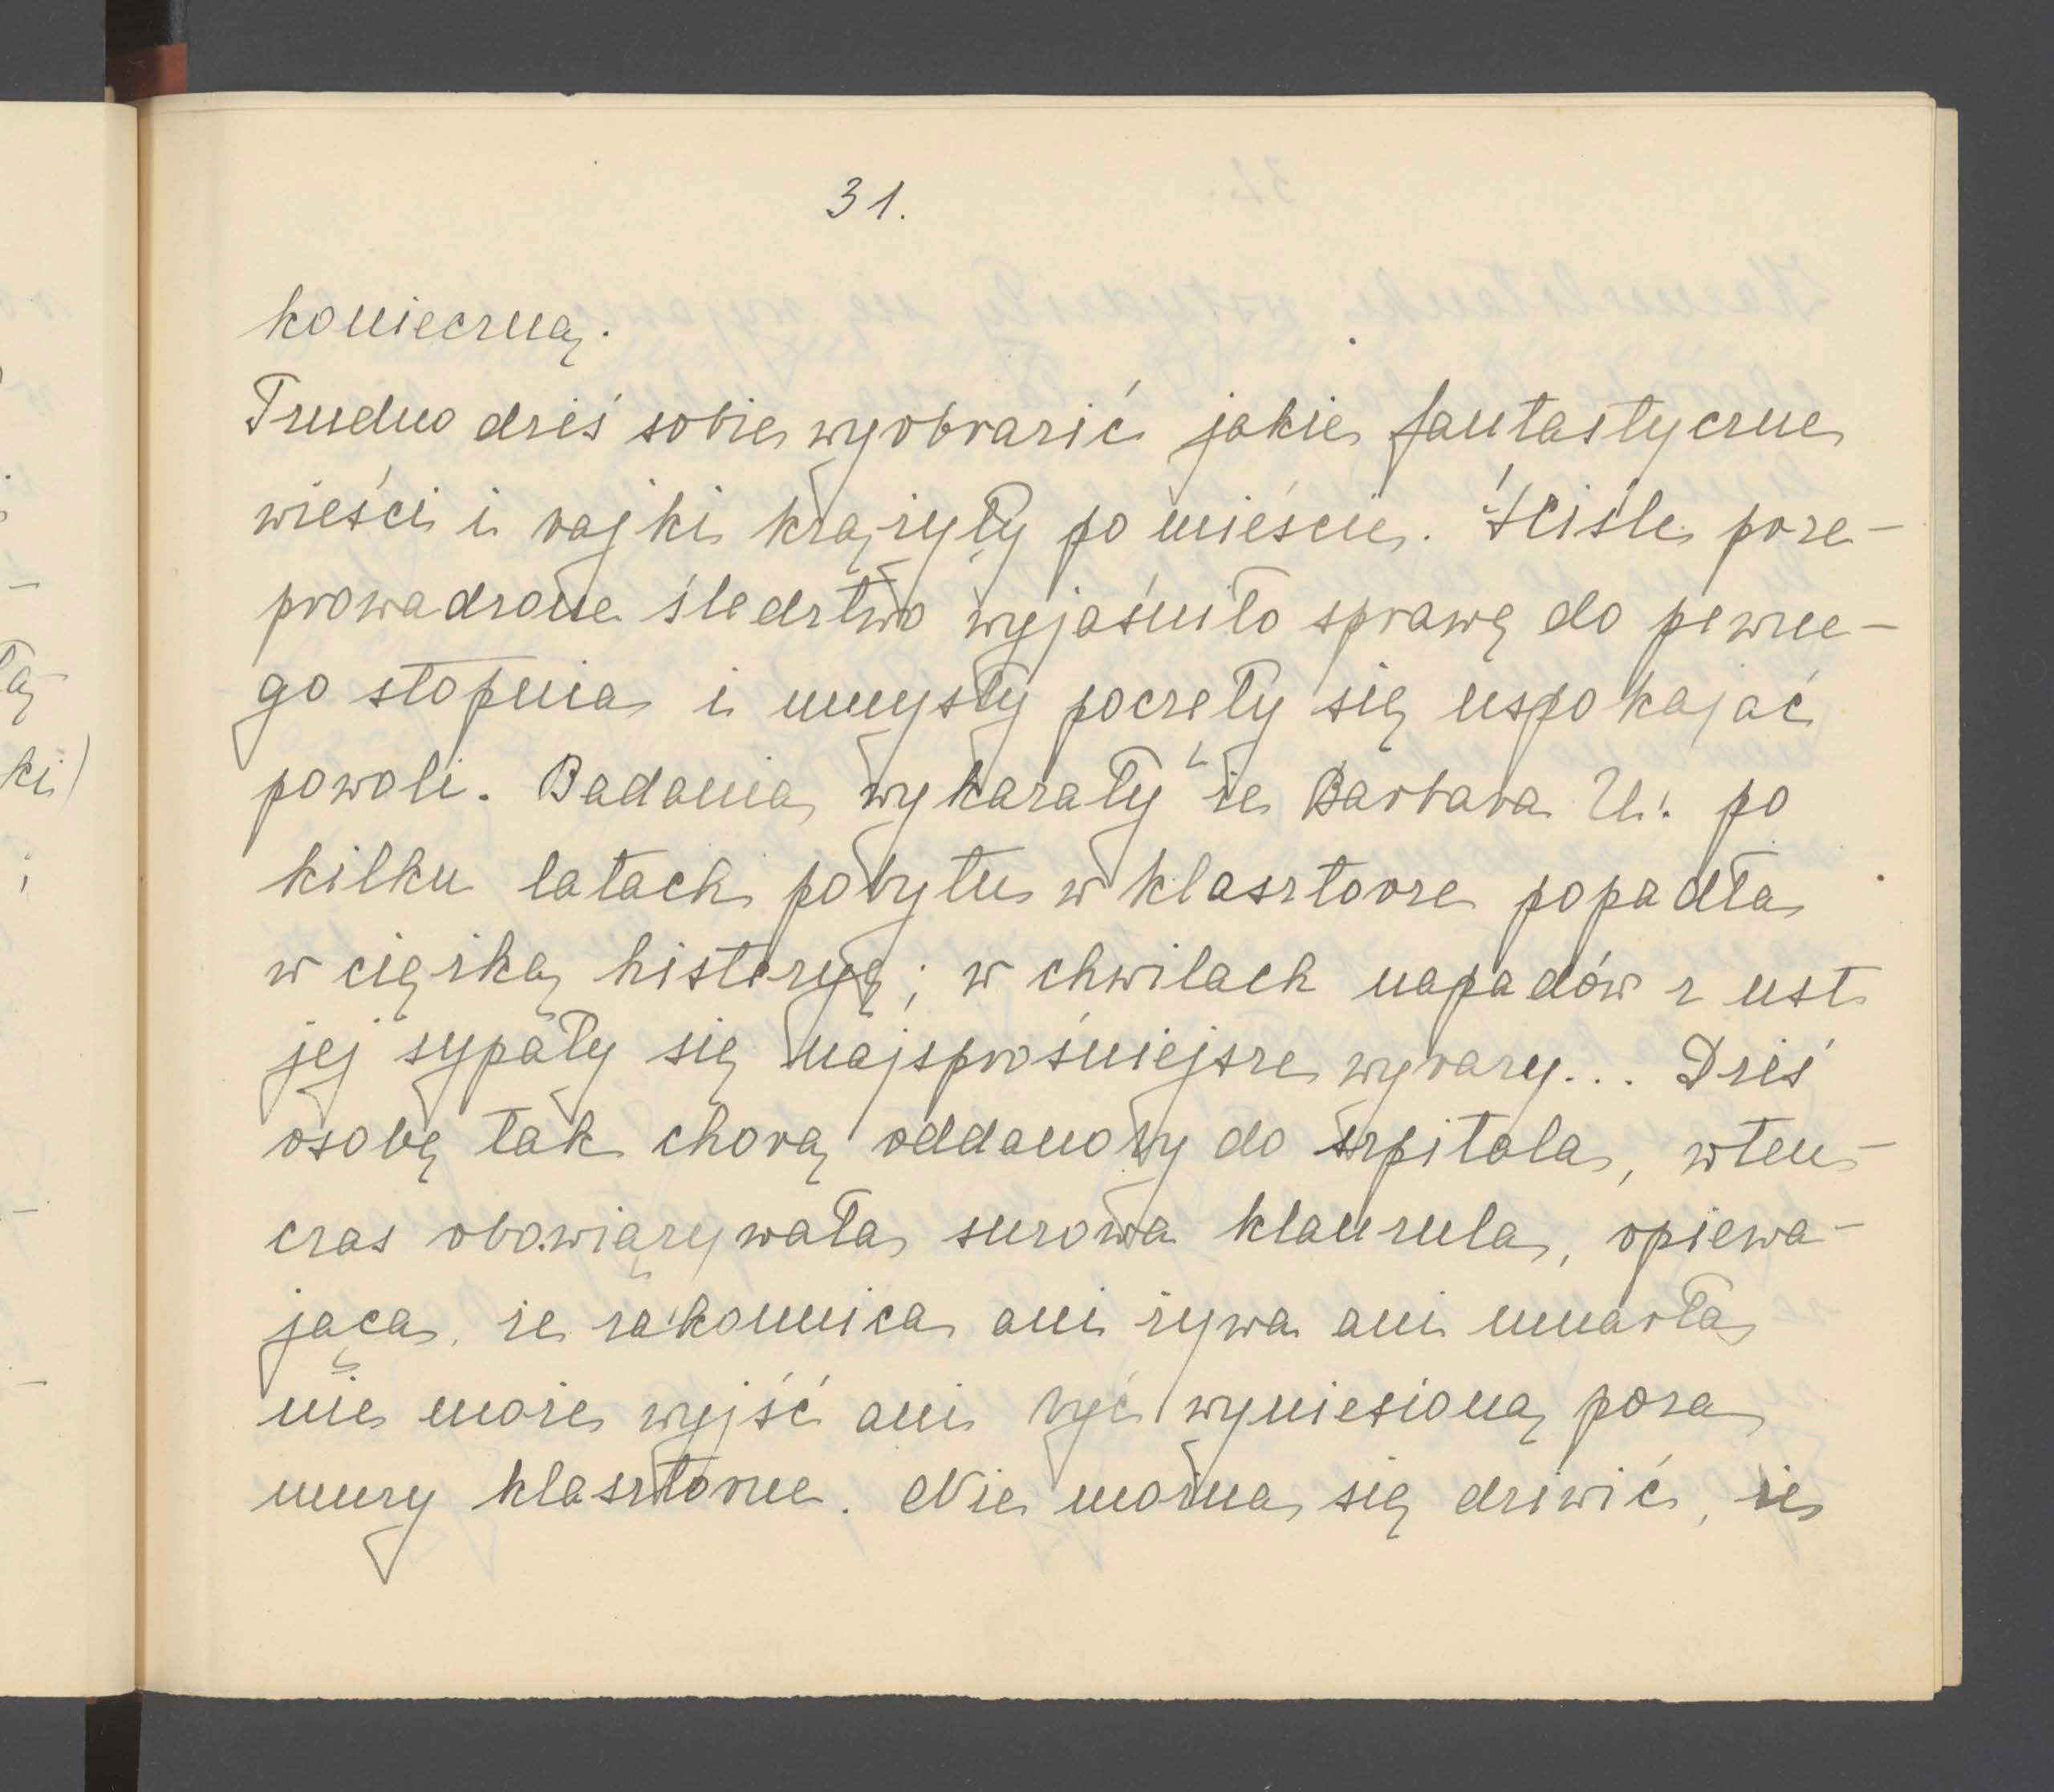 31.
konieczną.
Trudno dziś sobie wyobrazić jakie fantastyczne
wieści i bajki krążyły po mieście. Ściśle prze-
prowadzone śledztwo wyjaśniło sprawę do pewne-
go stopnia i umysły poczęły się uspokajać
powoli. Badania wykazały że Barbara U. po
kilku latach pobytu w klasztorze popadła
w ciężką histeryę; w chwilach napadów z ust
jej sypały się najsprośniejsze wyrazy... Dziś
osobę tak chorą oddanoby do szpitala, wten-
czas obowiązywała surowa klauzula, opiewa-
jąca, że zakonnica ani żywa ani umarła
nie może wyjść ani być wyniesioną poza
mury klasztorne. Nie można się dziwić, że